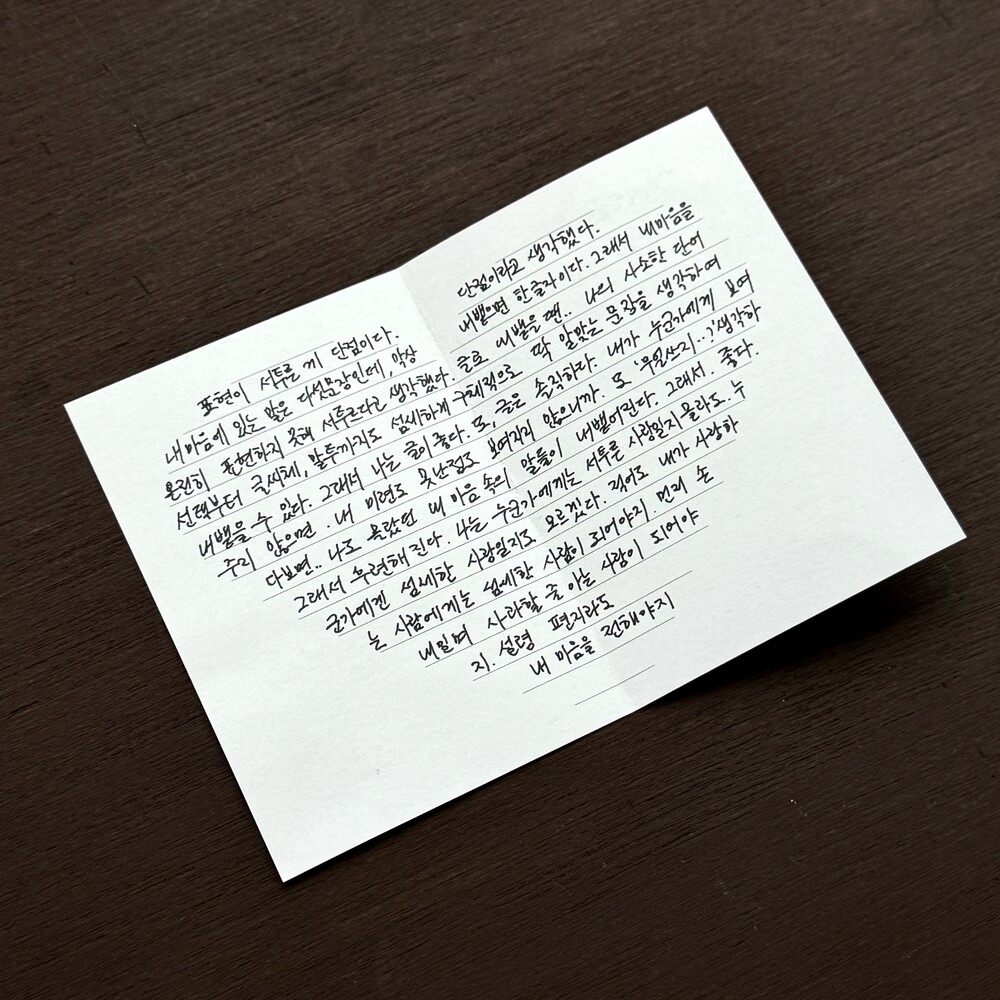 표현이 서투른 게 단점이다. 단점이라고 생각했다.
내 마음에 있는 말은 다섯문장인데, 막상 내뱉으면 한글자이다. 그래서 내마음을
온전히 표현하지 못해 서투르다고 생각했다. 글로 내뱉을 땐.. 나의 사소한 단어
선택부터 글씨체, 말투까지도 섬세하게 구체적으로 딱 알맞는 문장을 생각하여
내뱉을 수 있다. 그래서 나는 글이 좋다. 또, 글은 솔직하다. 내가 누군가에게 보여
주지 않으면. 내 미련도 못난점도 보여지지 않으니까. 또 '무얼쓰지..?'생각하
다보면.. 나도 몰랐던 내 마음 속의 말들이 내뱉어진다. 그래서. 좋다.
그래서 후련해진다. 나는 누군가에게는 서투른 사람일지 몰라도. 누
군가에겐 섬세한 사람일지도 모르겠다. 적어도 내가 사랑하
는 사람에게는 섬세한 사람이 되어야지. 먼저 손
내밀며 사과할 줄 아는 사람이 되어야
지. 설령 편지라도
내 마음을 전해야지